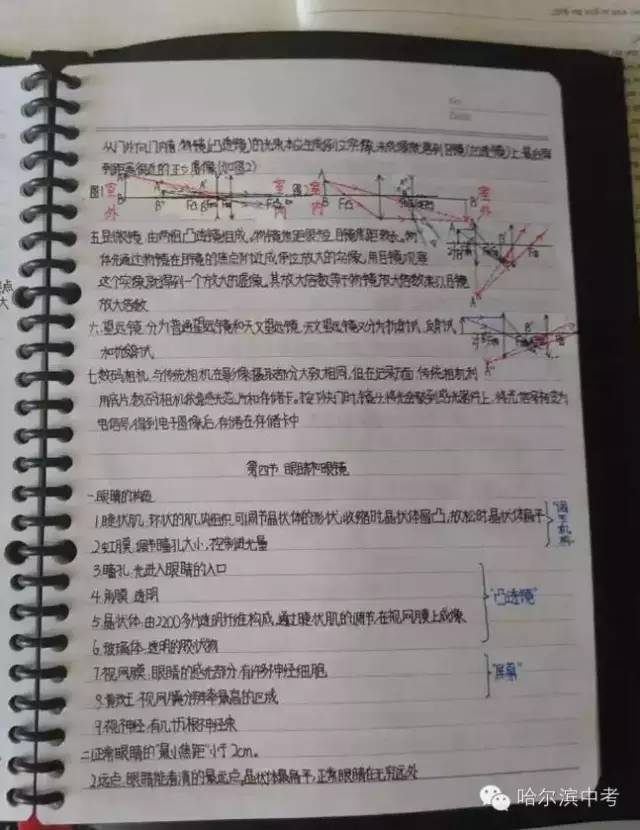 从门外向门内看:物镜(凸透镜)的光束本应生成倒立实像,未成像就遇到目镜(凹透镜)上,最后得
到距离很近的正立虚像(如图2)
图1 室外 室内 图2 室内 室外
五.显微镜:由两组凸透镜组成。物镜焦距很短,目镜焦距较长。物
体先通过物镜在目镜的焦点附近成倒立放大的实像,用目镜观察
这个实像就得到一个放大的虚像。其放大倍数等于物镜放大倍数乘以目镜
放大倍数
六.望远镜:分为普通望远镜和天文望远镜,天文望远镜又分为折射式,反射式
和折反射式
七.数码相机:与传统相机在影像摄取部分大致相同,但在记录方面,传统相机利
用底片,数码相机就靠感光芯片和存储卡。按下快门时,镜头将光会聚到感光器件上,将光信号转变为
电信号,得到电子图像后,存储在存储卡中
第四节 眼睛和眼镜
一.眼睛的构造
1.睫状肌:环状的肌肉组织,可调节晶状体的形状;收缩时,晶状体偏凸,放松时,晶状体扁平
2.虹膜:调节瞳孔大小,控制进光量
"调节机构"
3.瞳孔:光进入眼睛的入口
4.角膜:透明
5.晶状体:由2200多片透明纤维构成,通过睫状肌的调节,在视网膜上成像
6.玻璃体:透明的胶状物
"凸透镜"
7.视网膜:眼睛的感光部分,有许多神经细胞
"屏幕"
8.黄斑:视网膜分辨率最高的区域
9.视神经:有几十万根神经束
二.1.正常眼睛的"最小焦距"小于2cm。
2.远点:眼睛能看清的最远点,晶状体最扁平,正常眼睛在无穷远处
哈尔滨中考